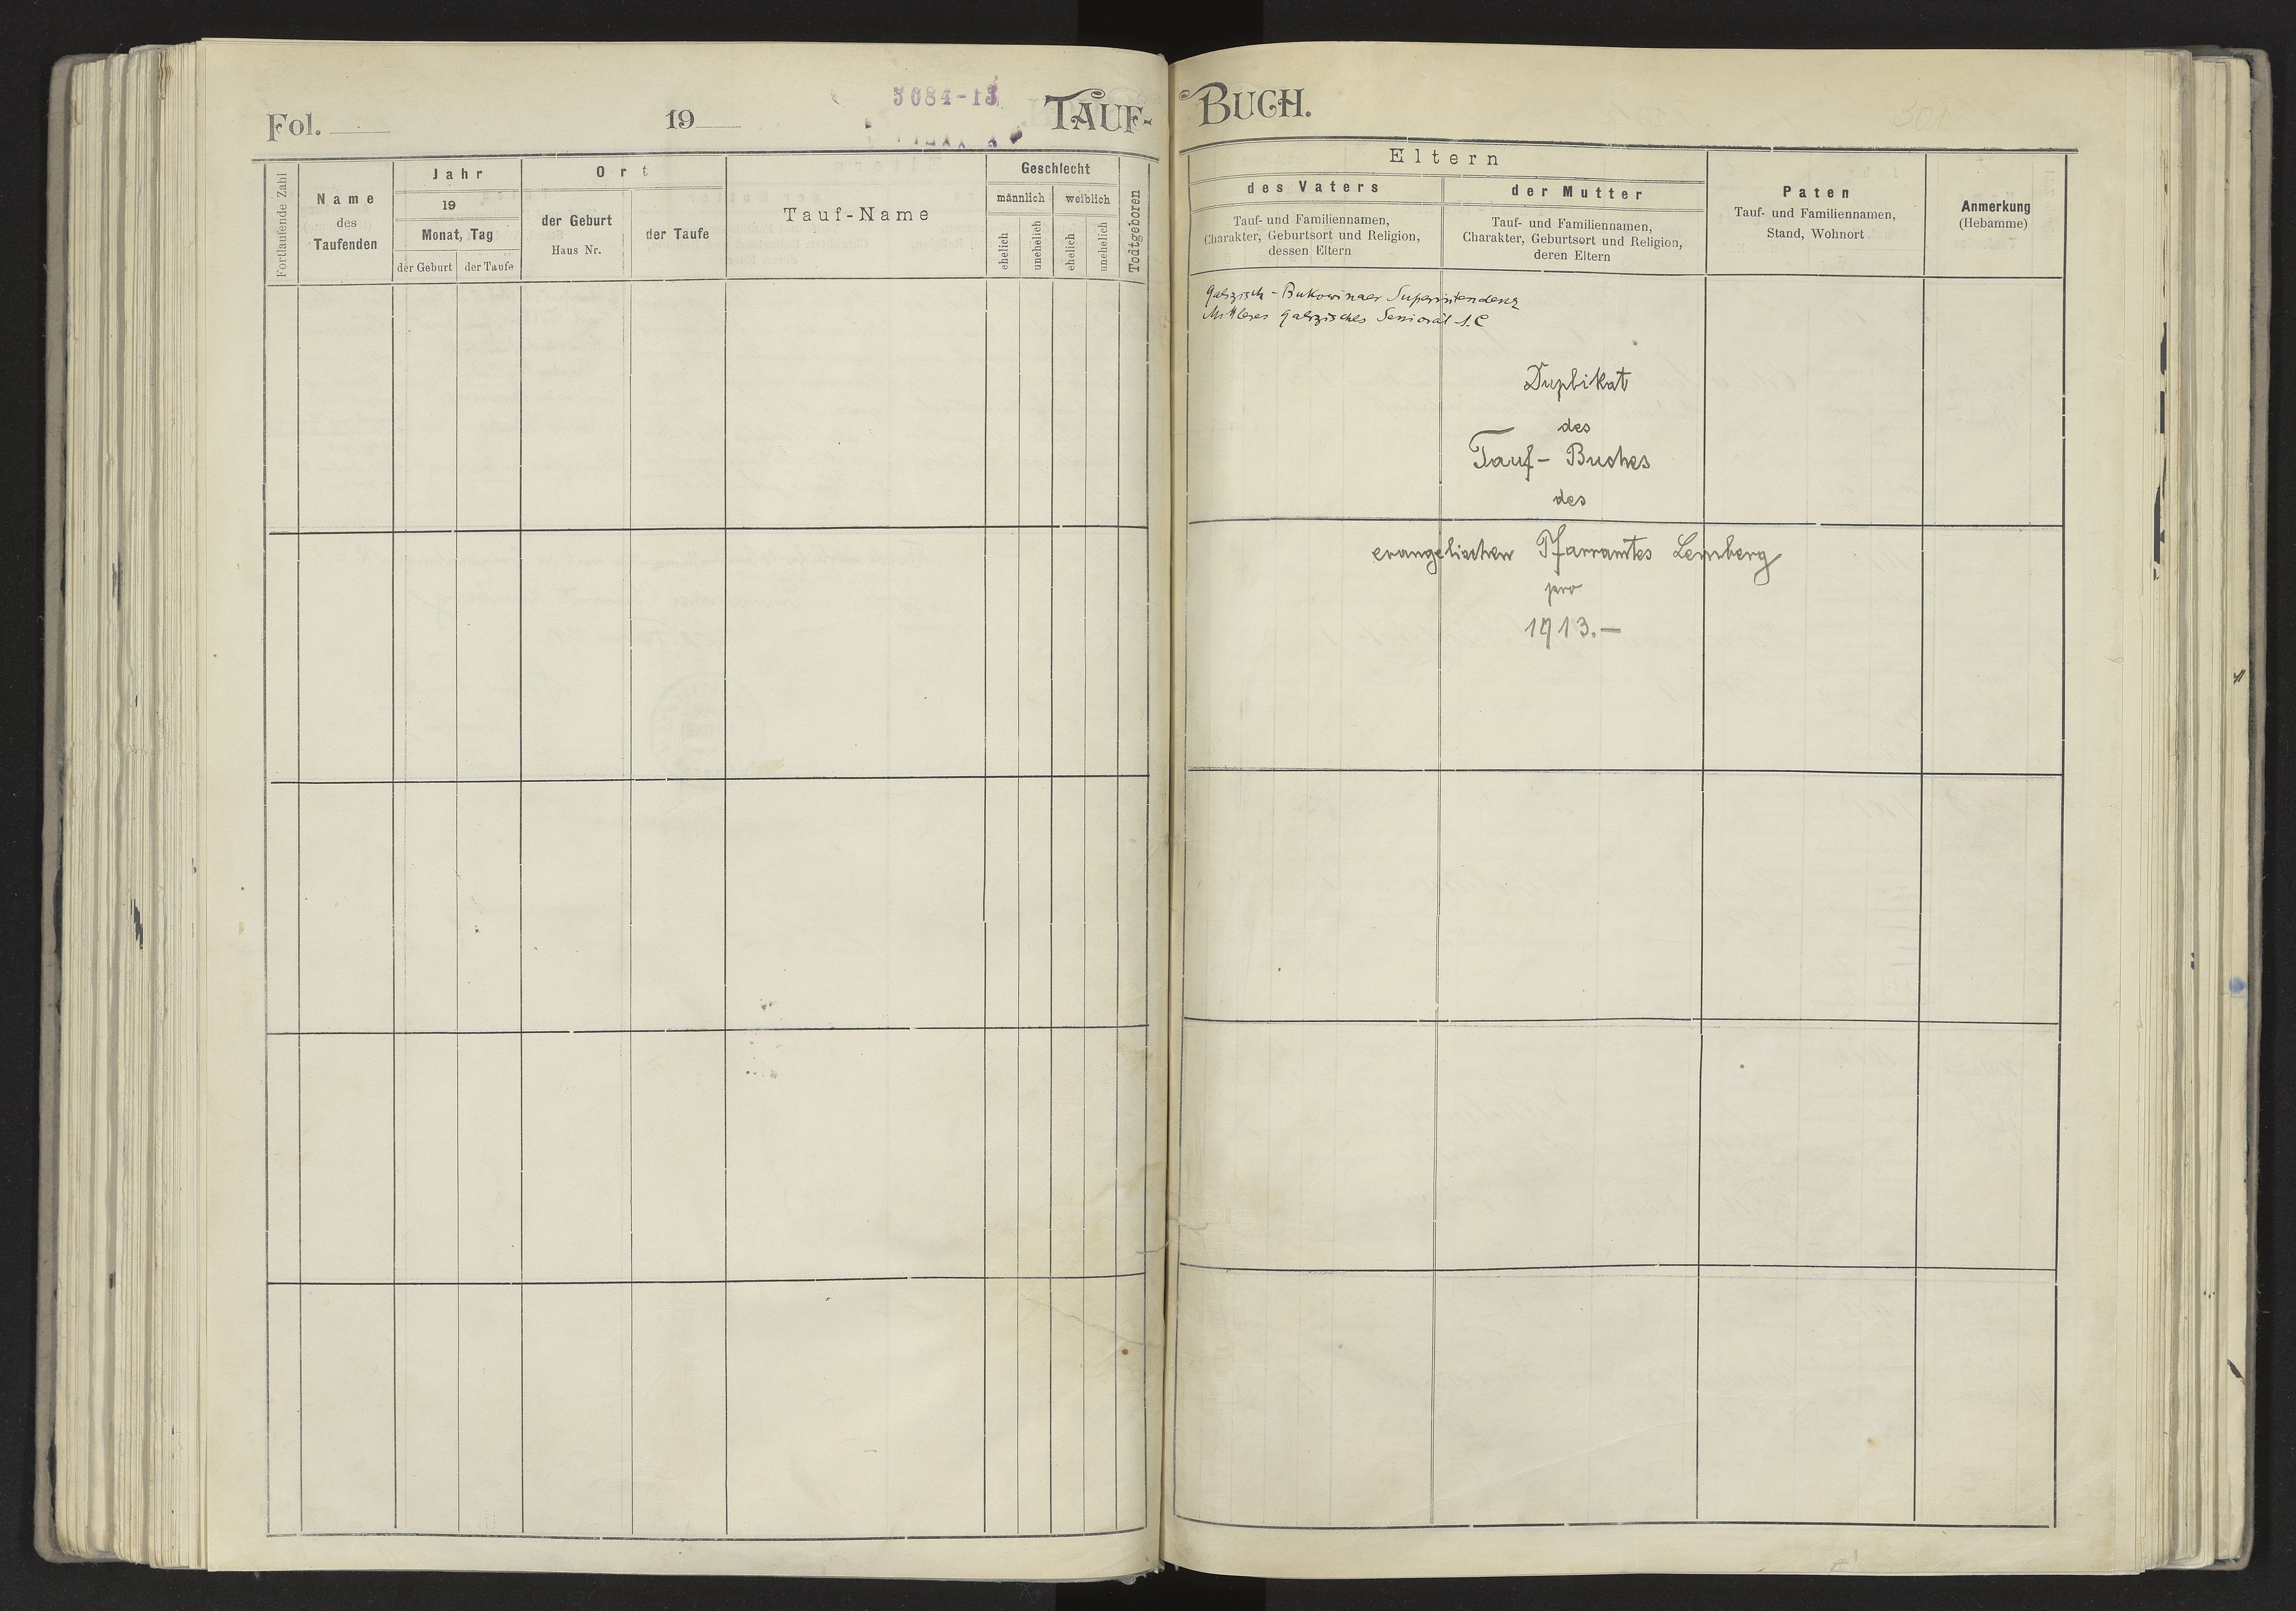 3084-13
Fol.
19
TAUF-
BUCH.
Fortlaufende Zahl
Name
des
Taufenden
Jahr
19
Monat, Tag
der Geburt
der Taufe
Ort
der Geburt
Haus Nr.
der Taufe
Tauf-Name
Geschlecht
männlich
weiblich
ehelich
unehelich
ehelich
unehelich
Todtgeboren
Eltern
des Vaters
Tauf- und Familiennamen,
Charakter, Geburtsort und Religion,
dessen Eltern
der Mutter
Tauf- und Familiennamen,
Charakter, Geburtsort und Religion,
deren Eltern
Paten
Tauf- und Familiennamen,
Stand, Wohnort
Anmerkung
(Hebamme)
Galizisch-Bukowinaer Superintendenz
Mittleres galizisches Seniorat A.C
Duplikat
des
Tauf-Buches
des
evangelischen Pfarramtes Lemberg
pro
1913.—